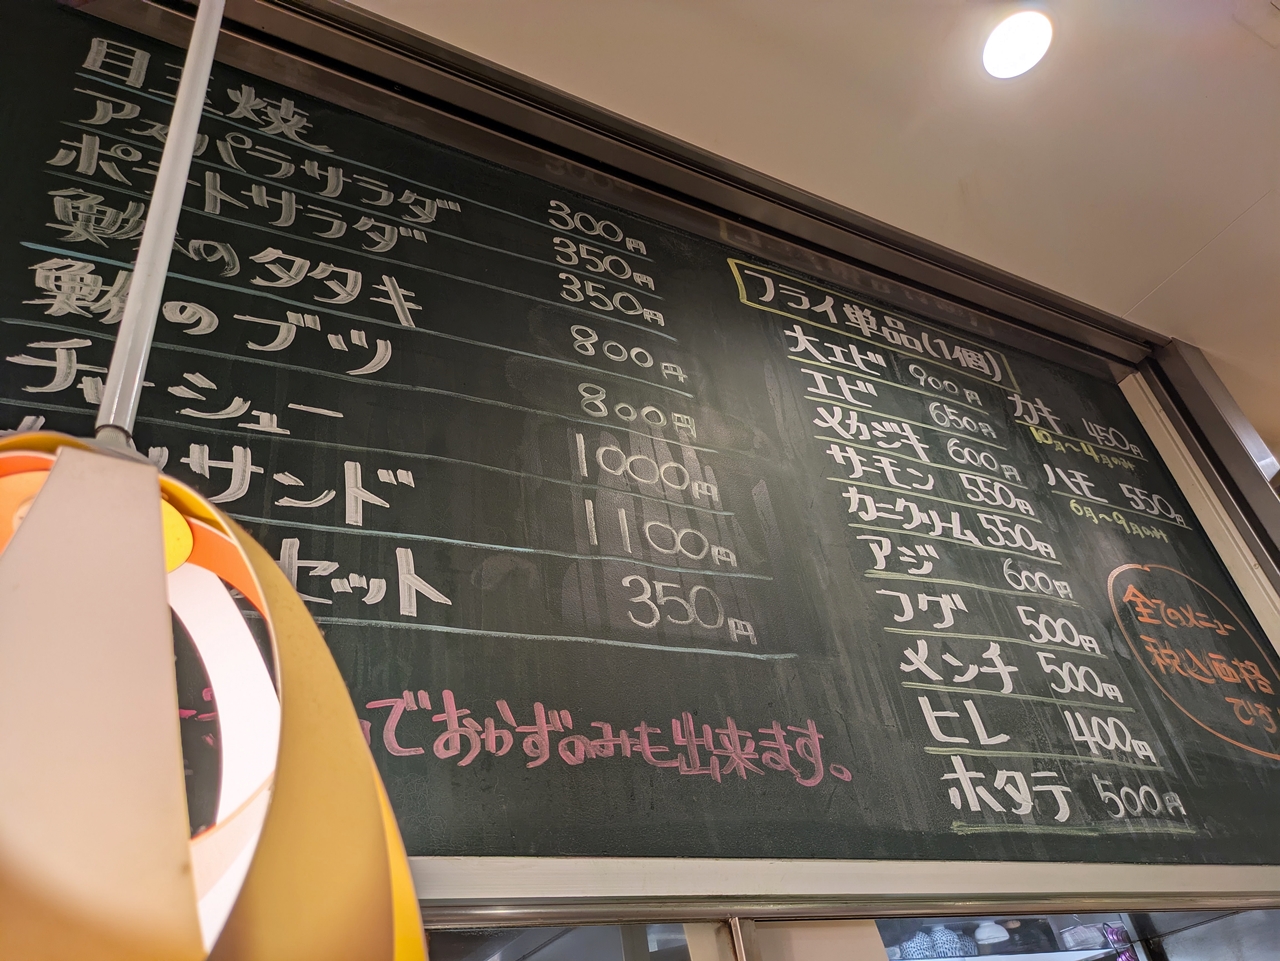 目玉焼 300円
アスパラサラダ 350円
ポテトサラダ 350円
のタタキ 800円
のブツ 800円
チャーシュー 1000円
サンド 1100円
セット 350円
でおかずのみも出来ます。
フライ単品(1個)
大エビ 900円
エビ 650円
メカジキ 600円
サーモン 550円
カニクリーム 550円
アジ 600円
フグ 500円
メンチ 500円
ヒレ 400円
ホタテ 500円
カキ 450円
10月〜4月のみ
ハモ 550円
6月〜9月のみ
全てのメニュー
税込価格
です